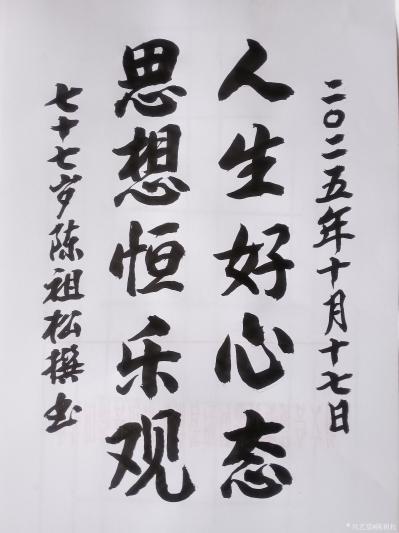 二〇二五年十月十七日
人生好心态
思想恒乐观
七十七岁陈祖松撰书